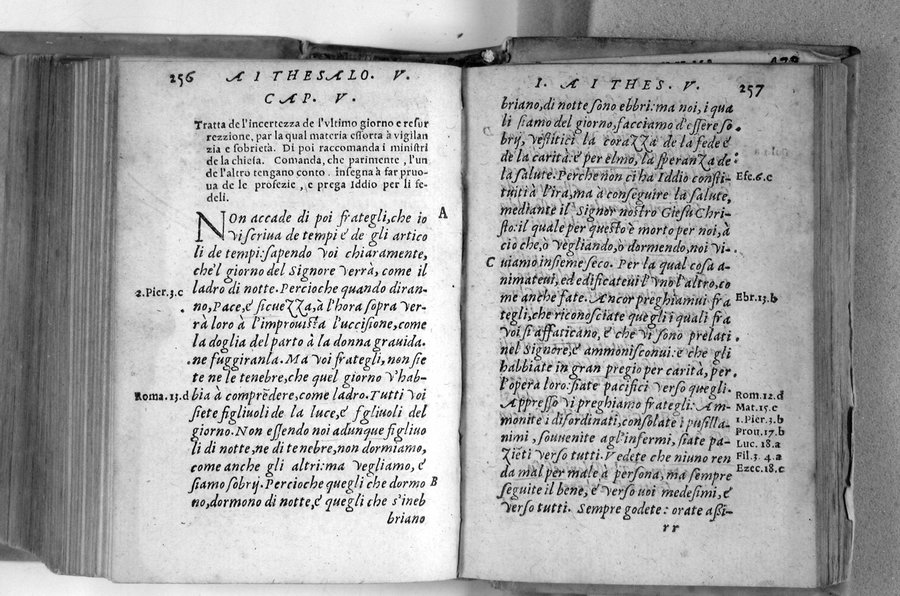 256 A I THESALO. V.
CAP. V.
Tratta de l'incertezza de l'vltimo giorno e resur
rezzione, par la qual materia essorta à vigilan
zia e sobrietà. Di poi raccomanda i ministri
de la chiesa. Comanda, che parimente, l'un
de l'altro tengano conto. insegna à far pruo-
ua de le profezie, e prega Iddio per li fe-
deli.
A
NOn accade di poi frategli, che io
vi scriua de tempi e' de gli artico
li de tempi: sapendo voi chiaramente,
che'l giorno del Signore verrà, come il
2.Pier.3.c
ladro di notte. Percioche quando diran-
no, Pace, e' sicuezza, à l'hora sopra ver-
rà loro à l'improuista l'uccisione, come
la doglia del parto à la donna grauida.
ne fuggiranla. Ma voi frategli, non sie
te ne le tenebre, che quel giorno v'hab-
Roma.13.d
bia à comprēdere, come ladro. Tutti voi
siete figliuoli de la luce, e' figliuoli del
giorno. Non essendo noi adunque figliuo
li di notte, ne di tenebre, non dormiamo,
come anche gli altri: ma vegliamo, e'
siamo sobrij. Percioche quegli che dormo
B
no, dormono di notte, e' quegli che s'ineb
briano
I. A I THES. V. 257
briano, di notte sono ebbri: ma noi, i qua
li siamo del giorno, facciamo d'essere so
brij, vestitici la corazza de la fede e'
de la carità: e' per elmo, la speranza de
Efe.6.c
la salute. Perche non ci ha Iddio consti-
tuiti à l'ira, ma à conseguire la salute,
mediante il Signor nostro Giesu Chri-
sto: il quale per questo è morto per noi, à
ciò che, o vegliando, o dormendo, noi vi-
C
uiamo insieme seco. Per la qual cosa a-
nimateui, ed edificateui l'vno l'altro, co
me anche fate. Ancor preghiamui fra
Ebr.13.b
tegli, che riconosciate quegli i quali fra
voi si affaticano, e' che vi sono prelati
nel Signore, e' ammonisconui: e che gli
habbiate in gran pregio per carità, per
l'opera loro: siate pacifici verso quegli.
Rom.12.d
Appresso vi preghiamo frategli: Am-
Mat.15.c
monite i disordinati, consolate i pusilla-
1.Pier.3.b
nimi, souuenite agl'infermi, siate pa-
Prou.17.b
zieti verso tutti. Vedete che niuno ren
Luc.18.a
Fil.3.4.a
da mal per male à persona, ma sempre
Ezec.18.c
seguite il bene, e' verso voi medesimi, e'
verso tutti. Sempre godete: orate assi-
rr